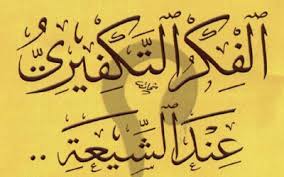 الفِكْرُ التَّكْفِيرِيُّ
عِنْدَ الشِّيعَةِ ..